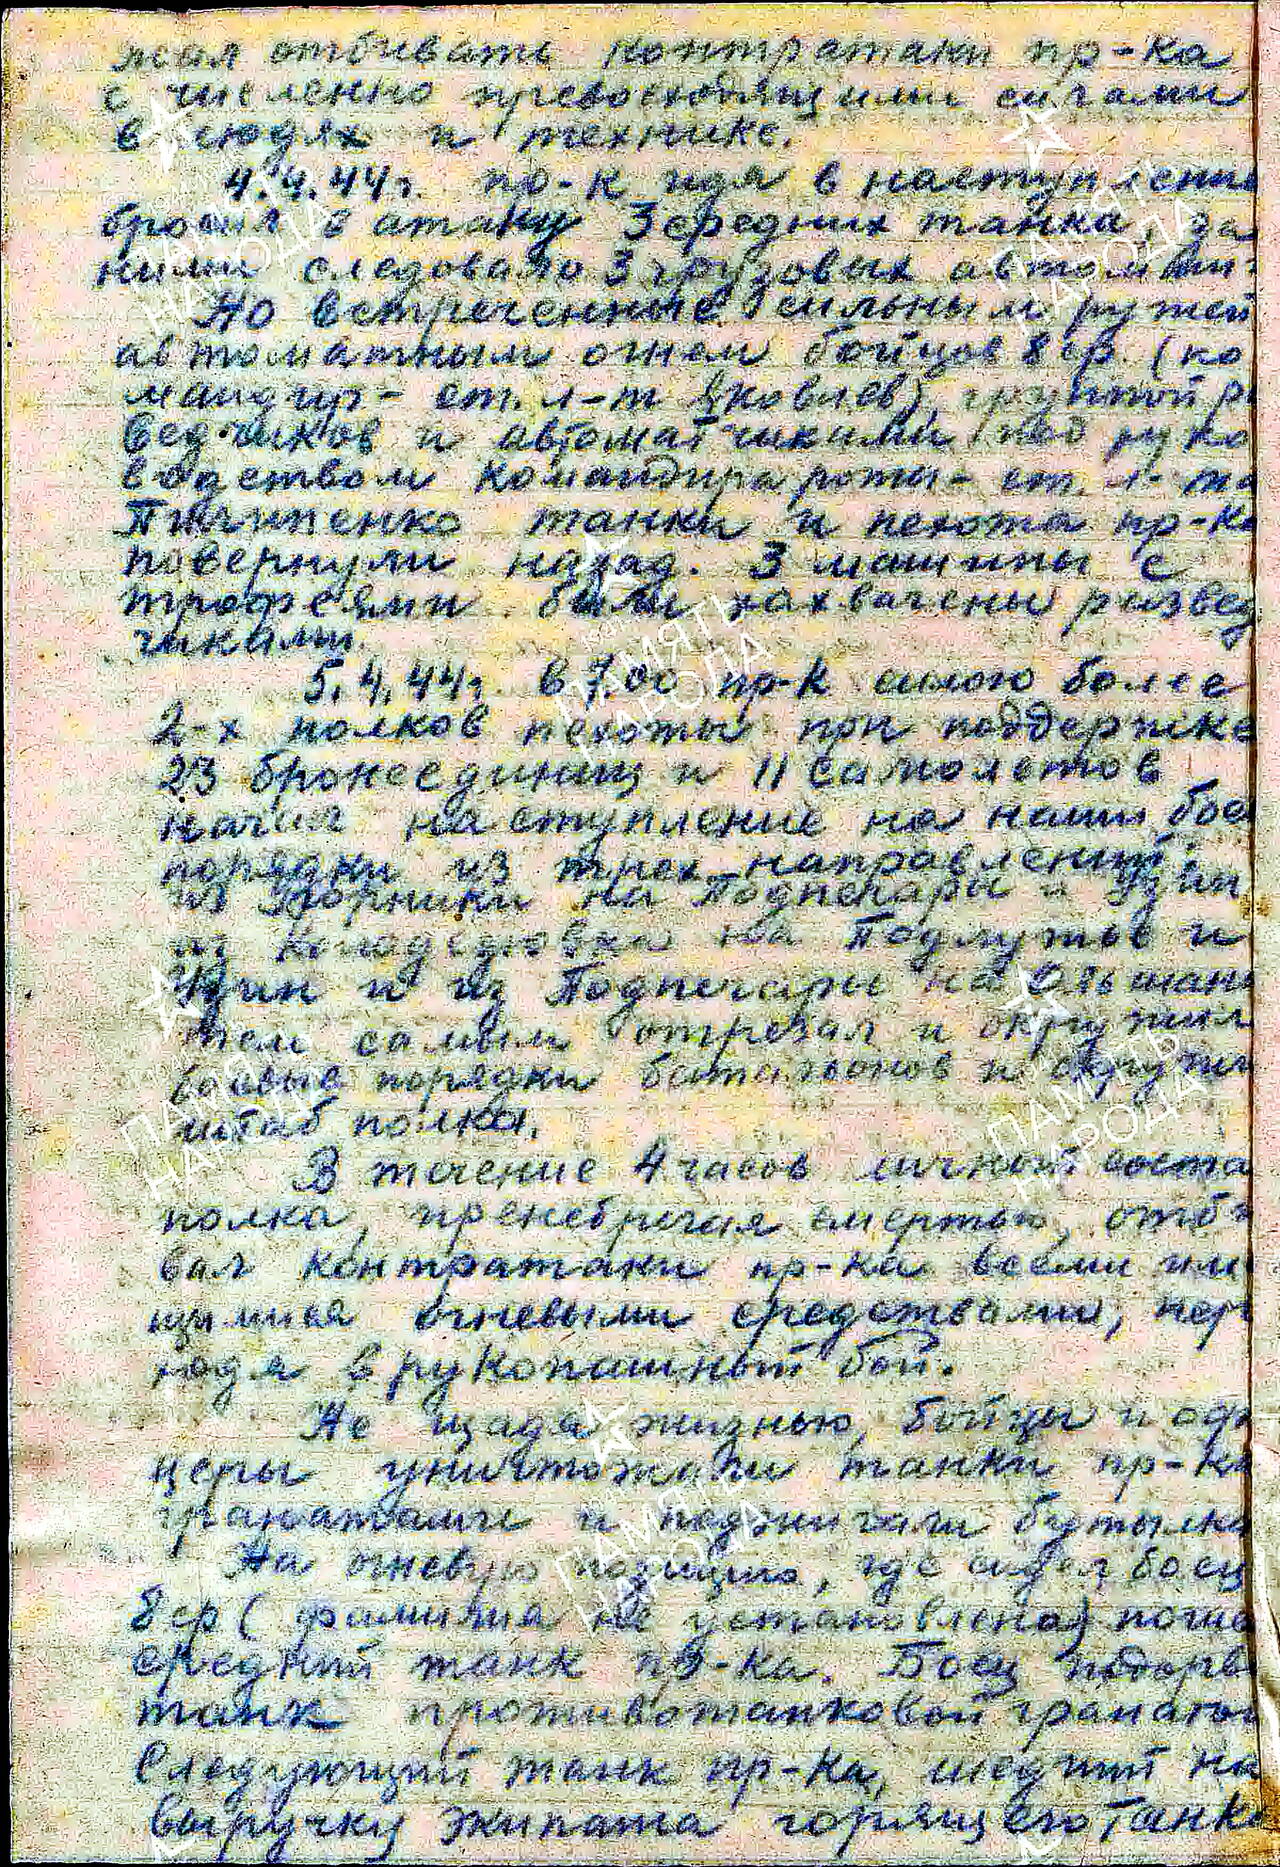 жая отбивать контратаки пр-ка
с численно превосходящими силами
в людях и технике.
4.4.44г. пр-к идя в наступление
бросил в атаку 3 средних танка, за
ними следовало 3 грузовых автомаши
Но встреченные сильным ружей
автоматным огнем бойцов 8 ср. (ко
мандир - ст. л-т Яковлев), группой р
ведчиков и автоматчиками под руко
водством командира роты - ст. л-та
танки и пехота пр-ка
повернули назад. 3 машины с
трофеями были захвачены развед
чиками.
5.4.44г. в 7.00 пр-к силою более
2-х полков пехоты при поддержке
23 бронеединиц и 11 самолетов
начал наступление на наши бое
порядки из трех направлений:
из на Подпечары и Узин
из на Подлужье и
Узин и из Подпечары на Ольшани
тем самым отрезал и окружил
боевые порядки батальонов и окружи
штаб полка.
В течение 4 часов личный соста
полка, пренебрегая смертью, отби
вал контратаки пр-ка всеми име
щимися огневыми средствами, пере
ходя в рукопашный бой.
Не щадя жизнью, бойцы и офи
церы уничтожали танки пр-ка
гранатами и поджигали бутылка
На огневую позицию, где сидел боец
8 ср (фамилия не установлена) пошел
средний танк пр-ка. Боец подорва
танк противотанковой гранатой
следующий танк пр-ка, шедший на
выручку экипажа горящего танка
ПАМЯТЬ
НАРОДА
ПАМЯТЬ
НАРОДА
ПАМЯТЬ
НАРОДА
ПАМЯТЬ
НАРОДА
ПАМЯТЬ
НАРОДА
ПАМЯТЬ
НАРОДА